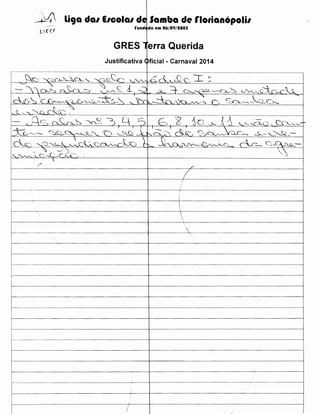 Liga das Escolas de Samba de Florianópolis
GRES Terra Querida
Justificativa Oficial - Carnaval 2014
Ao passar pelo módulo I:
- Nas alas nº 1, 2 e 7 apenas metade
dos componentes cantavam o samba
enredo.
- As alas nº 3, 4, 5, 6, 8, 10 e 11 não can-
tam sequer o refrão do samba enre-
do prejudicando a harmonia da agre-
miação.